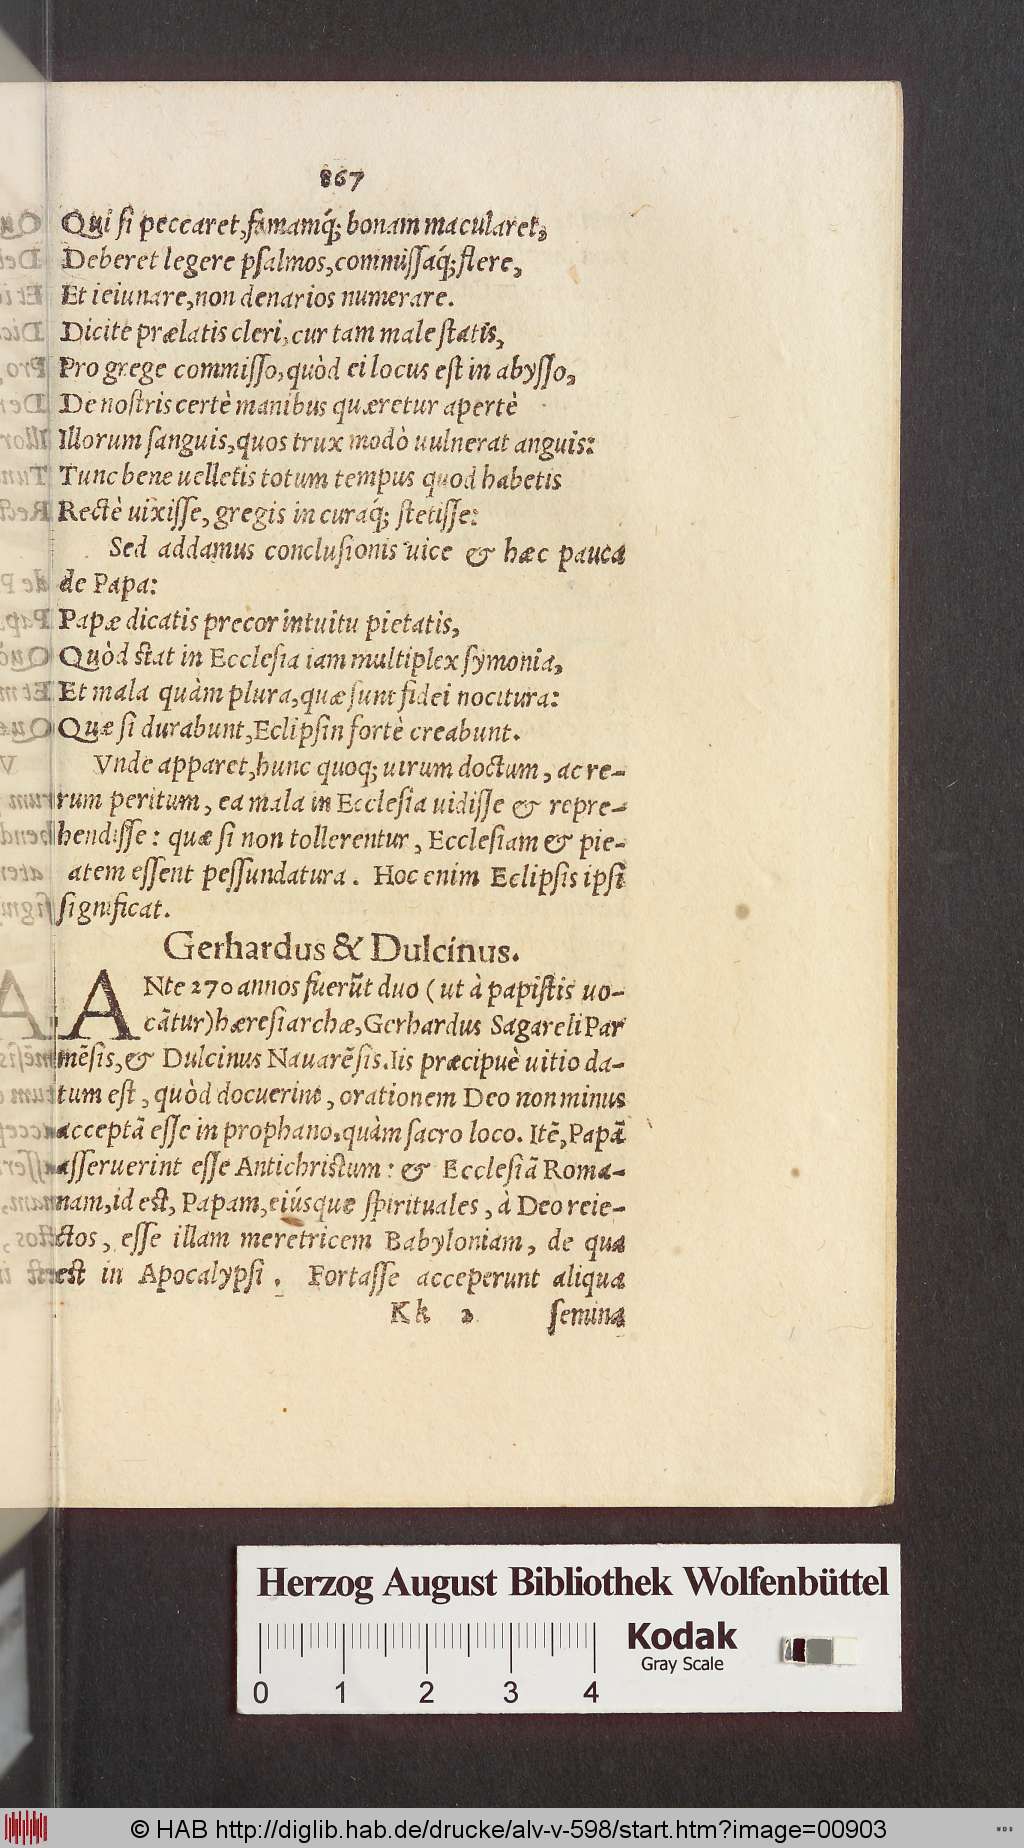 867
Qui si peccaret, famamq́; bonam macularet,
Deberet legere psalmos, commissáq́; flere,
Et ieiunare, non denarios numerare.
Dicite prælatis cleri, cur tam male statis,
Pro grege commisso, quòd ei locus est in abysso,
De nostris certè manibus quæretur apertè
Illorum sanguis, quos trux modò uulnerat anguis:
Tunc bene uelletis totum tempus quod habetis
Rectè uixisse, gregis in curaq́; stetisse:
Sed addamus conclusionis uice & hæc pauca
de Papa:
Papæ dicatis precor intuitu pietatis,
Quòd stat in Ecclesia iam multiplex symonia,
Et mala quàm plura, quæ sunt fidei nocitura:
Quæ si durabunt, Eclipsin fortè creabunt.
Vnde apparet, hunc quoq; uirum doctum, ac re-
rum peritum, ea mala in Ecclesia uidisse & repre-
hendisse: quæ si non tollerentur, Ecclesiam & pie-
atem essent pessundatura. Hoc enim Eclipsis ipsi
significat.
Gerhardus & Dulcinus.
ANte 270 annos fuerũt duo (ut à papistis uo-
cãtur) hæresiarchæ, Gerhardus Sagareli Par
mẽsis, & Dulcinus Nauarẽsis. Iis præcipuè uitio da-
tum est, quòd docuerint, orationem Deo non minus
acceptã esse in prophano, quàm sacro loco. Itẽ, Papã
asseruerint esse Antichristum: & Ecclesiã Roma-
nam, id est, Papam, eiúsque spirituales, à Deo reie-
ctos, esse illam meretricem Babyloniam, de qua
est in Apocalypsi. Fortasse acceperunt aliqua
Kk 2 semina
Herzog August Bibliothek Wolfenbüttel
Kodak
Gray Scale
0 1 2 3 4
© HAB http://diglib.hab.de/drucke/alv-v-598/start.htm?image=00903